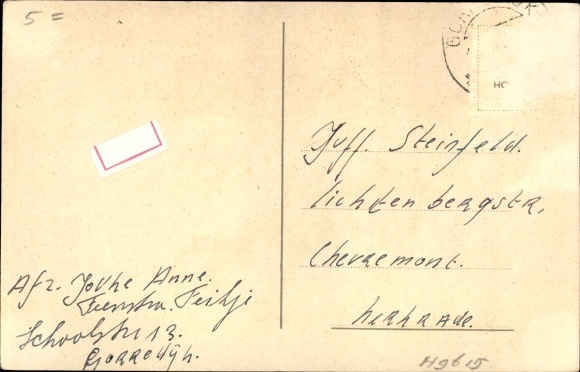 5=
HO
Juff. Steinfeld.
lichtenbergstr.
Chevremont.
kerkrade.
Afz. Jovke Anne.
Feenstra. Feikje
Schoolstr 13.
Gorredijk.
H9615